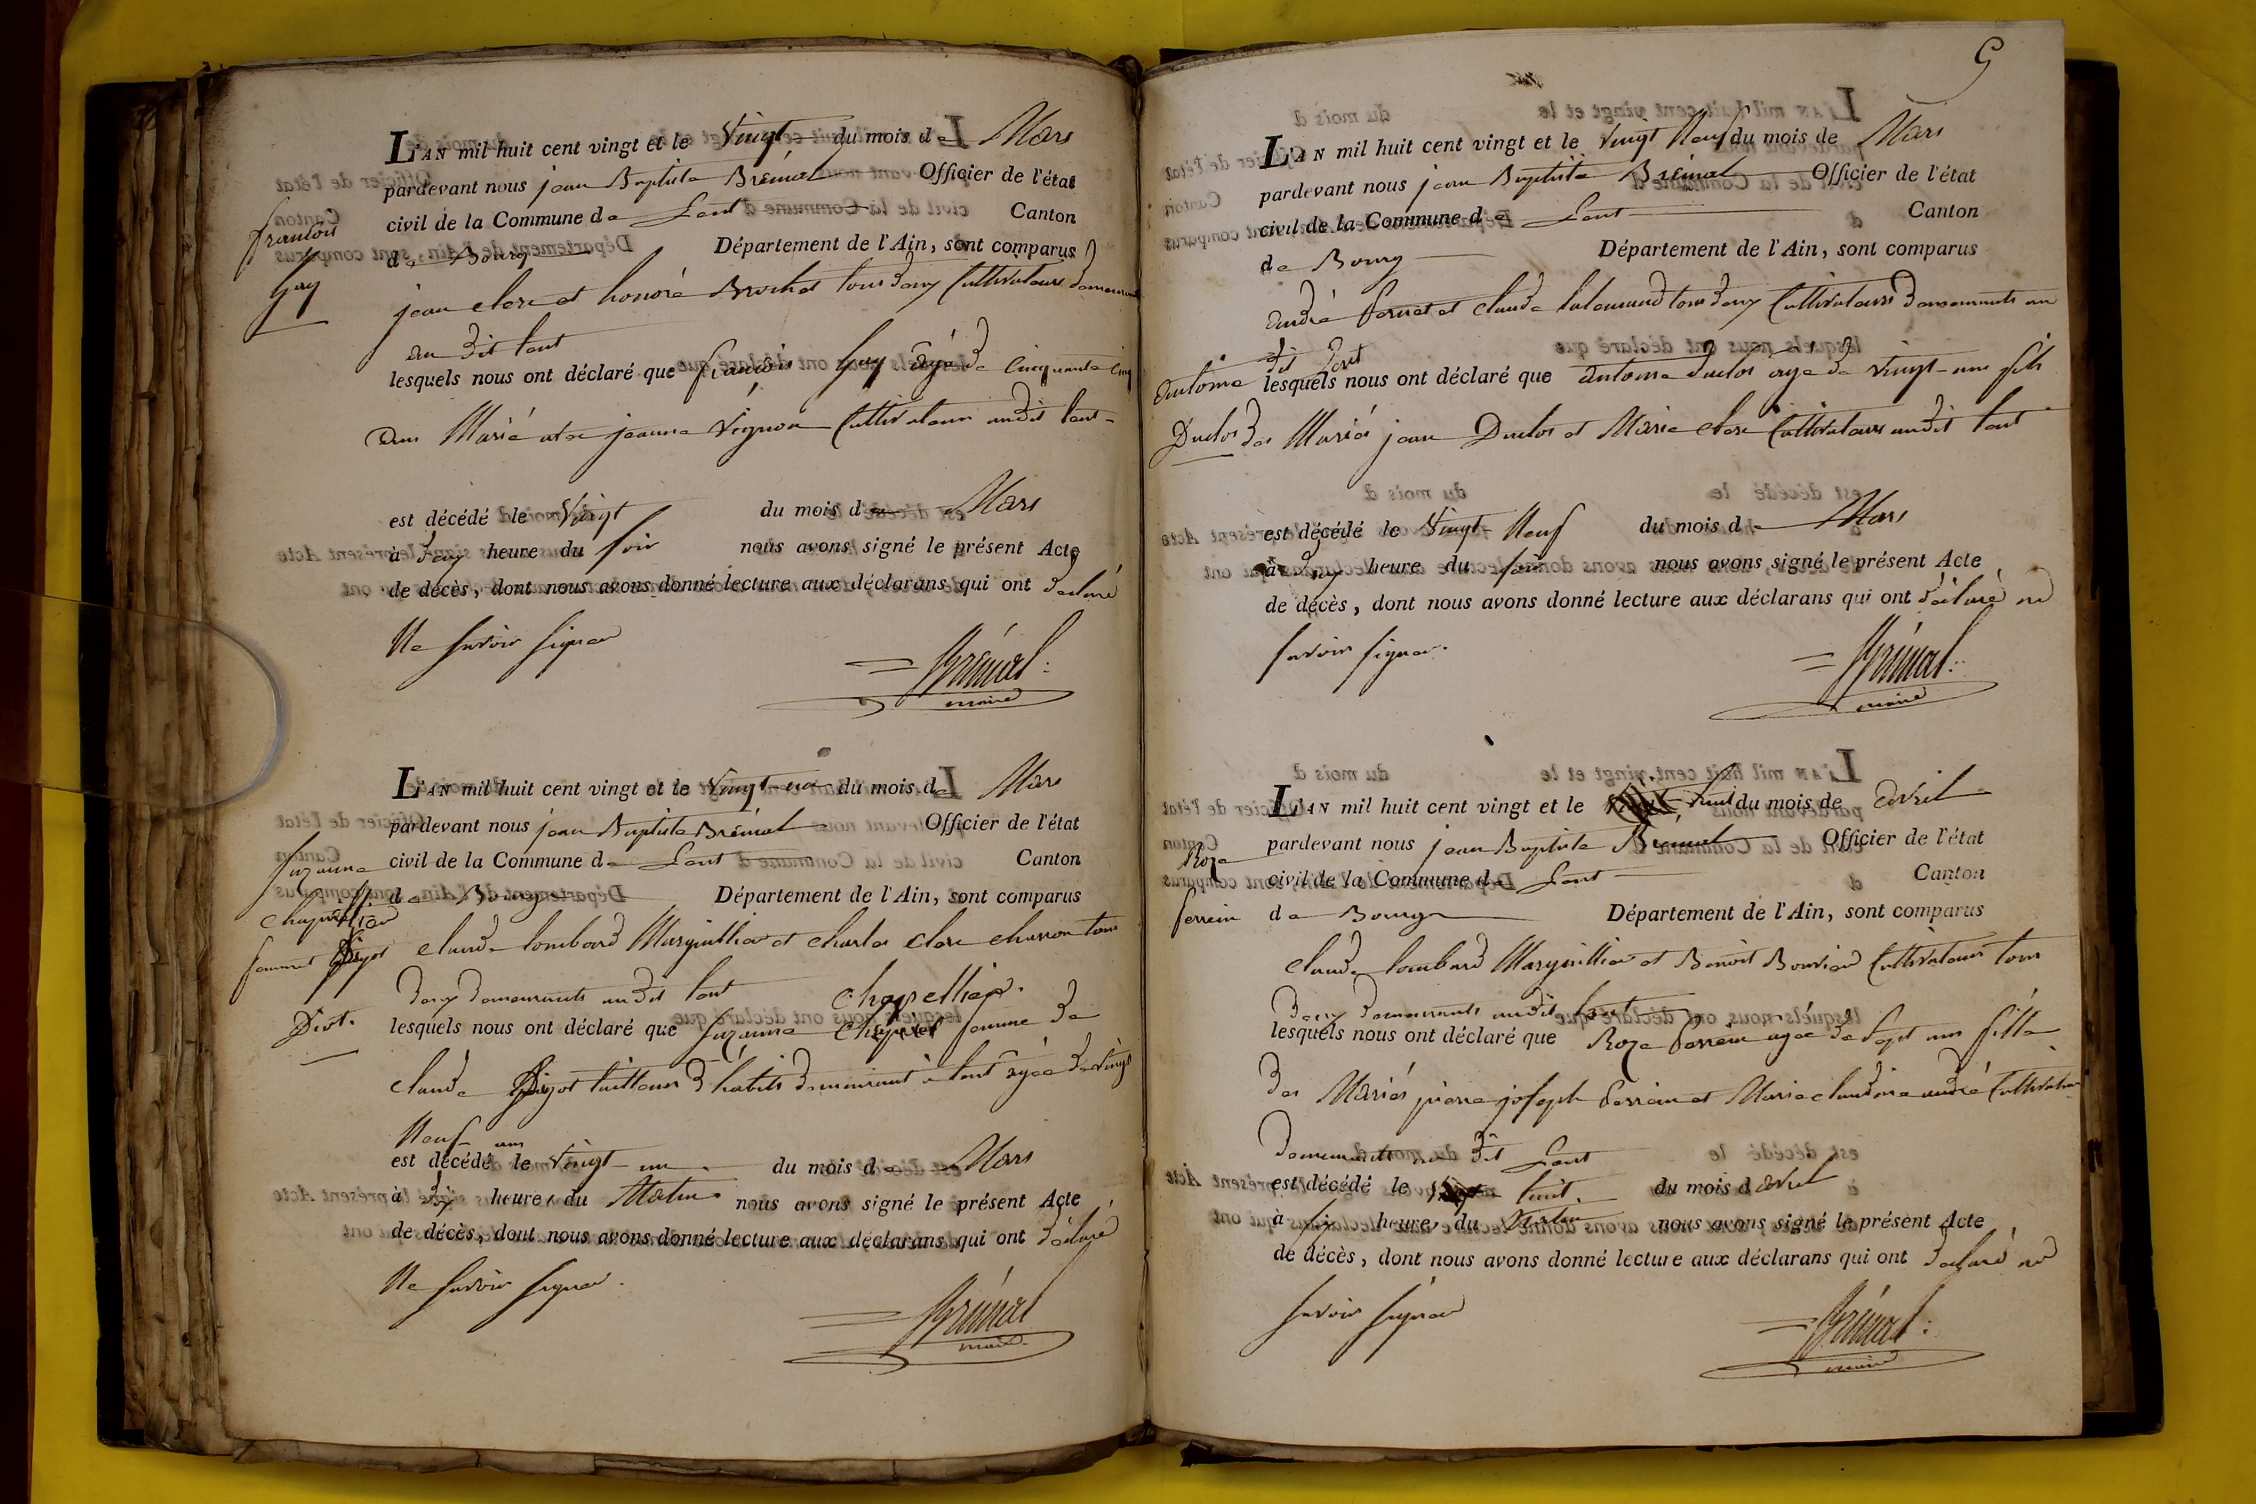 L'AN mil huit cent vingt et le Vingt du mois de Mars
pardevant nous jean Baptiste Brémal Officier de l'état
civil de la Commune de Lent Canton
de Bourg Département de l'Ain, sont comparus
françois
Guy
jean clerc et honoré Brochet tous deux Cultivateurs demeurant
au dit Lent
lesquels nous ont déclaré que françois Guy âgé de cinquante cinq
ans Marié avec jeanne Vignon Cultivateur audit Lent
est décédé le Vingt du mois de Mars
à heure du soir nous avons signé le présent Acte
de décès, dont nous avons donné lecture aux déclarans qui ont déclaré
Ne savoir signer
Brémal
maire
L'AN mil huit cent vingt et le Vingt-un du mois de Mars
pardevant nous jean Baptiste Brémal Officier de l'état
civil de la Commune de Lent Canton
de Bourg Département de l'Ain, sont comparus
Suzanne
Chapellier
femme
claude Lombard Marguillier et charles clerc charron tous
deux demeurants audit Lent Chapellier
lesquels nous ont déclaré que Suzanne femme de
claude tailleur d'habits demeurant à Lent âgée de vingt
Neuf ans
est décédé le vingt-un du mois de Mars
à dix heures du Matin nous avons signé le présent Acte
de décès, dont nous avons donné lecture aux déclarans qui ont déclaré
Ne savoir signer.
Brémal
maire
5
L'AN mil huit cent vingt et le Vingt Neuf du mois de Mars
pardevant nous jean Baptiste Brémal Officier de l'état
civil de la Commune de Lent Canton
de Bourg Département de l'Ain, sont comparus
André et claude tous deux Cultivateurs demeurants au
dit Lent
Antoine
Duclos
lesquels nous ont déclaré que Antoine Duclos âgé de vingt-un fils
des Mariés jean Duclos et Marie clerc Cultivateurs audit Lent
est décédé le Vingt Neuf du mois de Mars
à heure du soir nous avons signé le présent Acte
de décès, dont nous avons donné lecture aux déclarans qui ont déclaré ne
savoir signer.
Brémal
maire
L'AN mil huit cent vingt et le huit du mois de avril
pardevant nous jean Baptiste Brémal Officier de l'état
civil de la Commune de Lent Canton
de Bourg Département de l'Ain, sont comparus
Roze
Perrein
claude Lombard Marguillier et Benoit Bouvier Cultivateur tous
deux demeurants audit Lent
lesquels nous ont déclaré que Roze Perrein agée de Sept ans fille
des Mariés pierre joseph Perrein et Marie claudine andré Cultivateurs
demeurants au dit Lent
est décédé le huit du mois d avril
à heures du nous avons signé le présent Acte
de décès, dont nous avons donné lecture aux déclarans qui ont déclaré ne
savoir signer
Brémal
maire